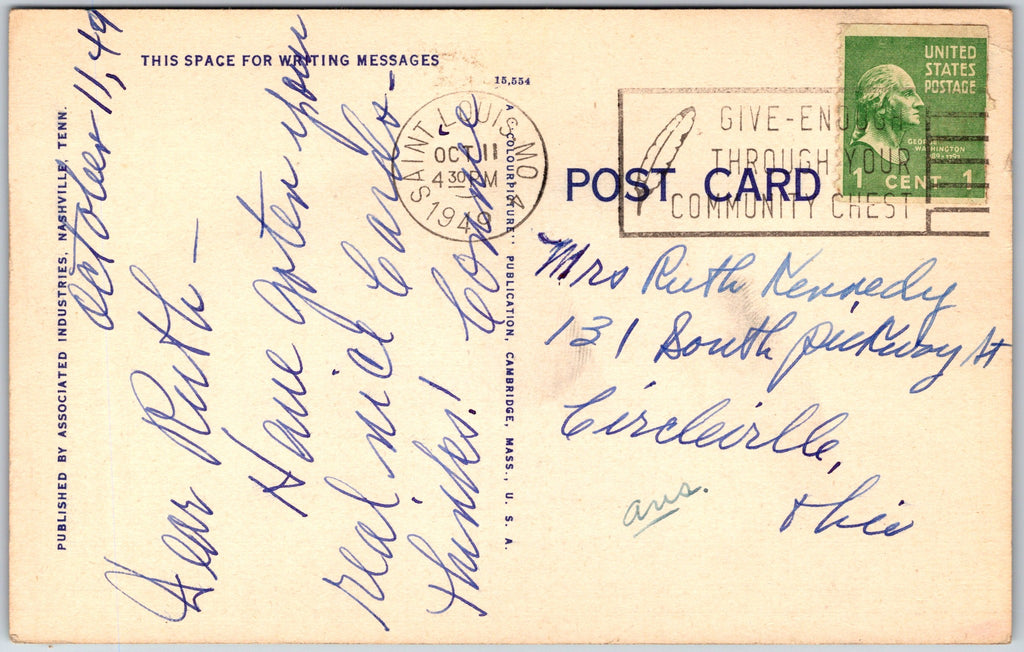 THIS SPACE FOR WRITING MESSAGES
15,554
PUBLISHED BY ASSOCIATED INDUSTRIES, NASHVILLE, TENN.
October 11, 49
Dear Ruth —
Have goten your
real nice Cards -
thinks! Connie
A "COLOURPICTURE" PUBLICATION, CAMBRIDGE, MASS., U. S. A.
SAINT LOUIS, MO. 4
OCT 11
4 30 PM
1949
GIVE-ENOUGH
THROUGH YOUR
COMMUNITY CHEST
UNITED
STATES
POSTAGE
GEORGE
WASHINGTON
1789-1797
1 CENT 1
POST CARD
Mrs Ruth Kennedy
131 South pickway St
Circleville,
Ohio
ans.